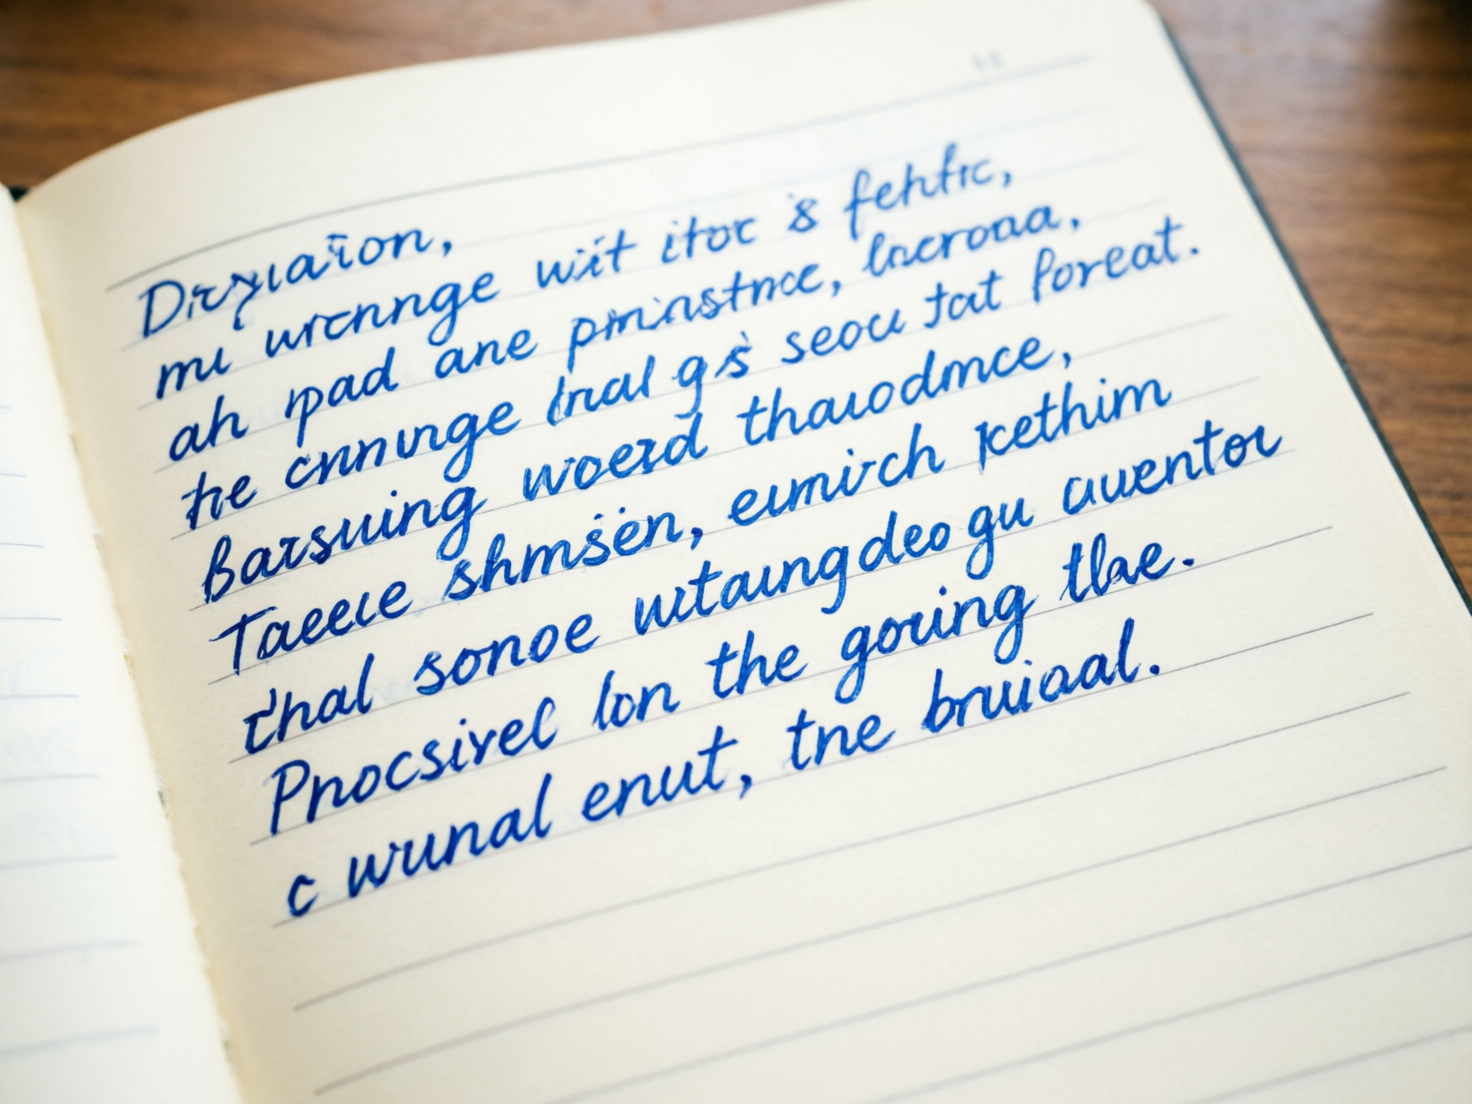 mu wrcnnge wit itoc is fehfic,
ah pad ane pminstnce, lncroaa,
he cnnunge lnal gis seou tat foreat.
Barsuing woerd thauodmce,
Taeele shmsen, eumirch kethim
thal sonoe wtaungdeo gu auentor
Pnocsivel lon the gouing the.
c wunal enut, tne bruiaal.